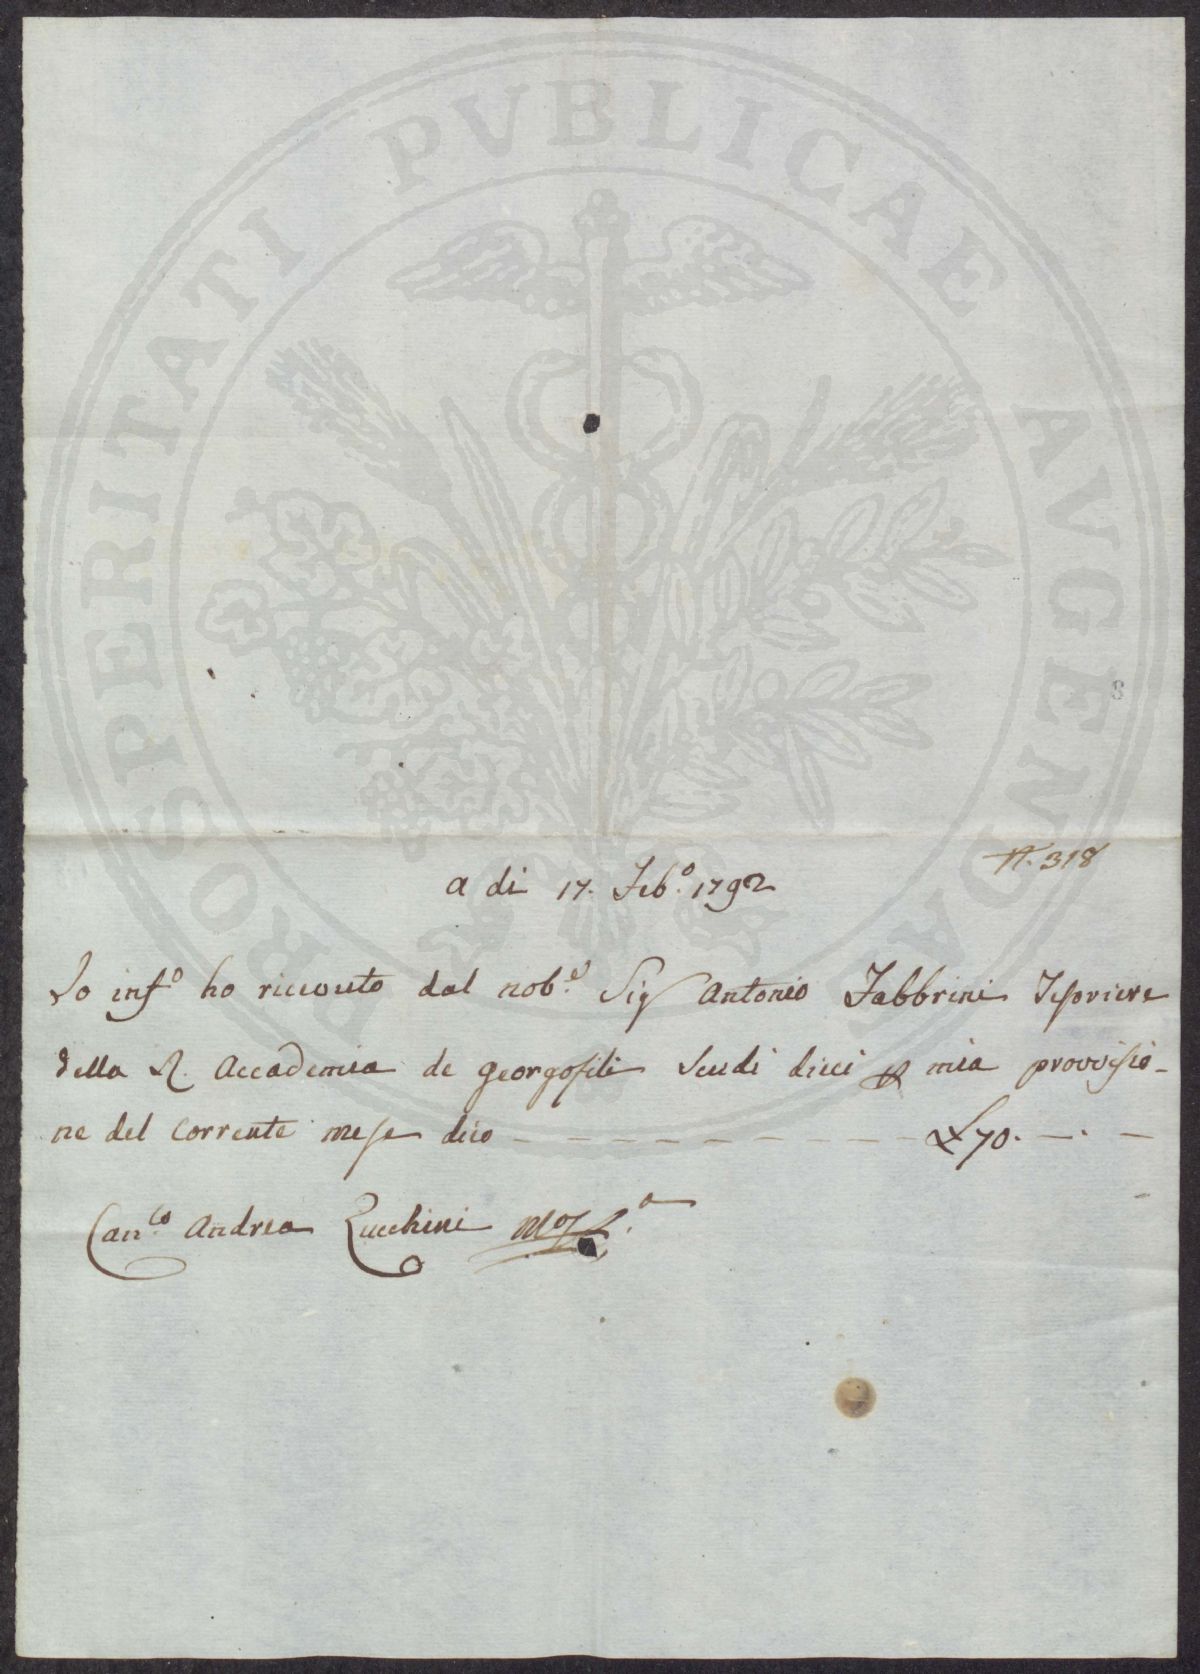 PROSPERITATI PVBLICAE AVGENDAE
8
N. 318
a di 17. Feb.º 1792
Io inf.º ho riceuuto dal nob.e Sig Antonio Fabbrini Tesoriere
della R. Accademia de Georgofili Scudi dieci p mia provvisio-
ne del corrente mese dico - - - - - - - - - £ 70. - . -
Can.co Andrea Zucchini